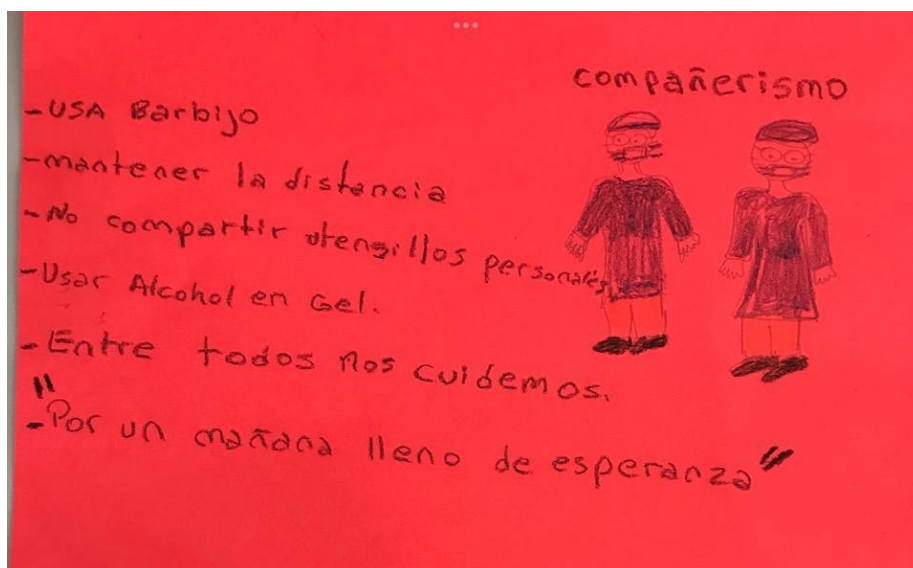 compañerismo
-USA Barbijo
-mantener la distancia
-No compartir utensillos personales
-Usar Alcohol en Gel.
-Entre todos nos cuidemos.
"-Por un mañana lleno de esperanza"